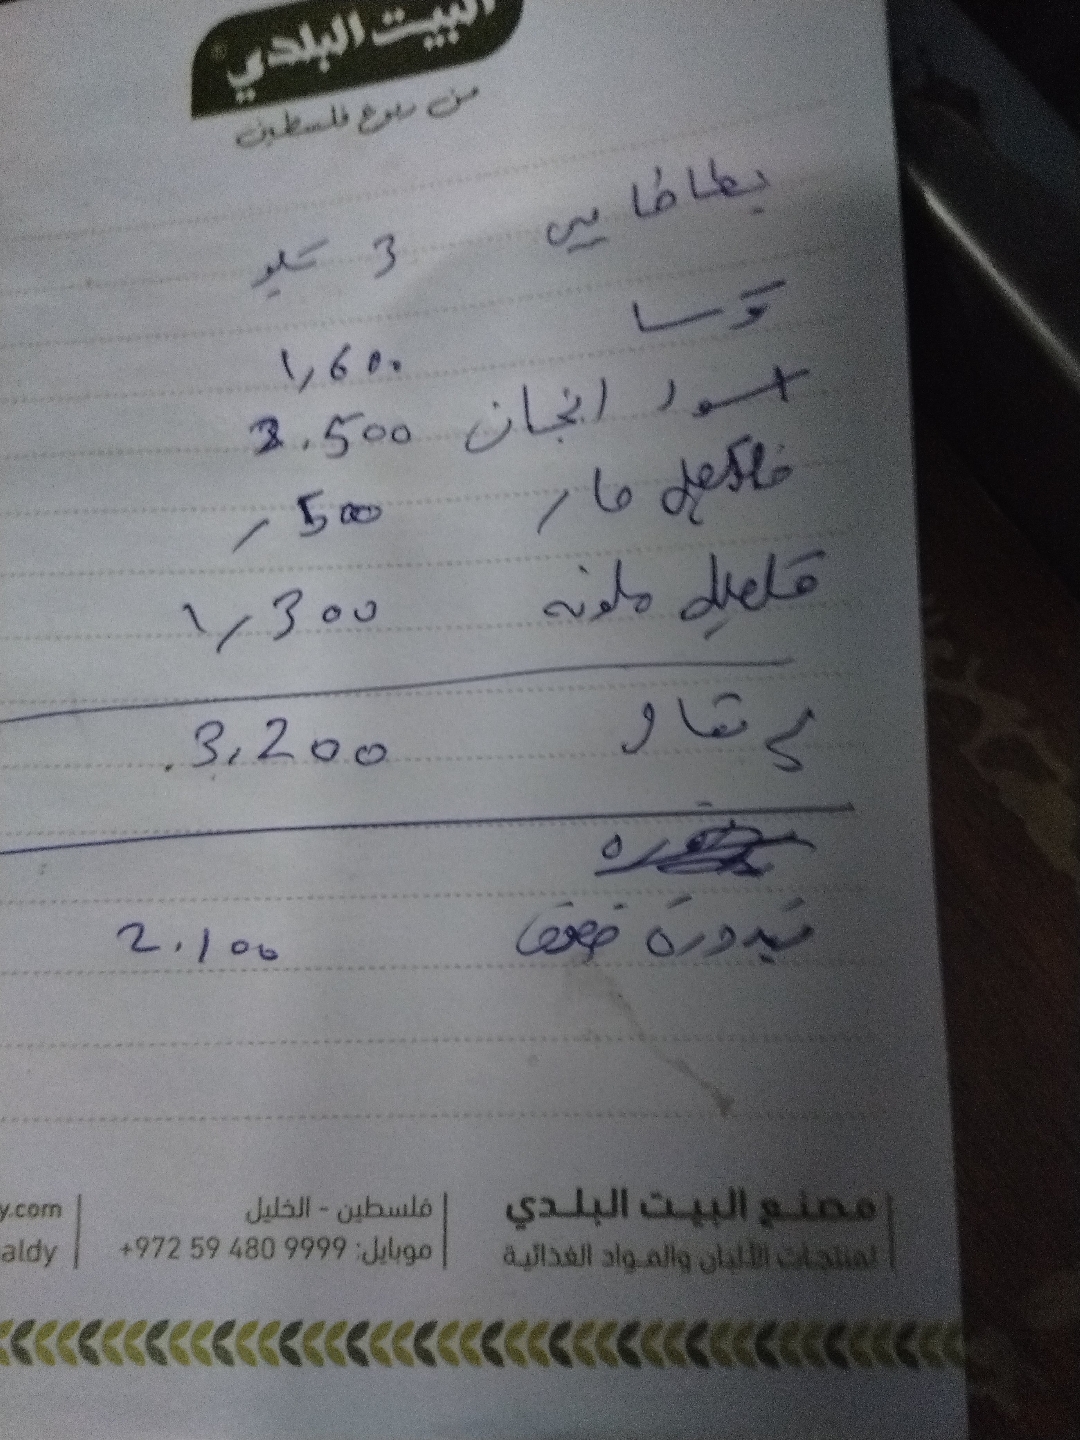 البيت البلدي
من ربوع فلسطين
بطاطا بيبي 3 كيلو
كوسا 1,600
اسود انجان 2.500
فلافل حار ,500
فلفل ملونه 1,300
3,200
بندورة 2.100
مصنع البيت البلدي
لمنتجات الألبان والمواد الغذائية
فلسطين - الخليل
موبايل: 9999 480 59 972+
y.com
aldy